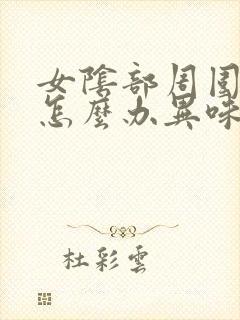 女陰部周圍
怎麼办異味
杜彩雲